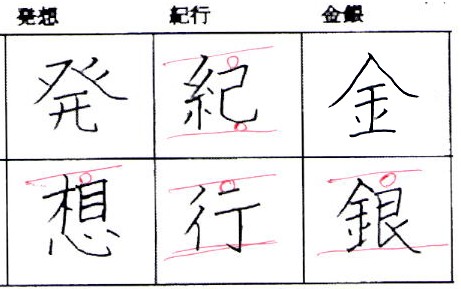 発想 紀行 金銀
発 紀 金
想 行 銀